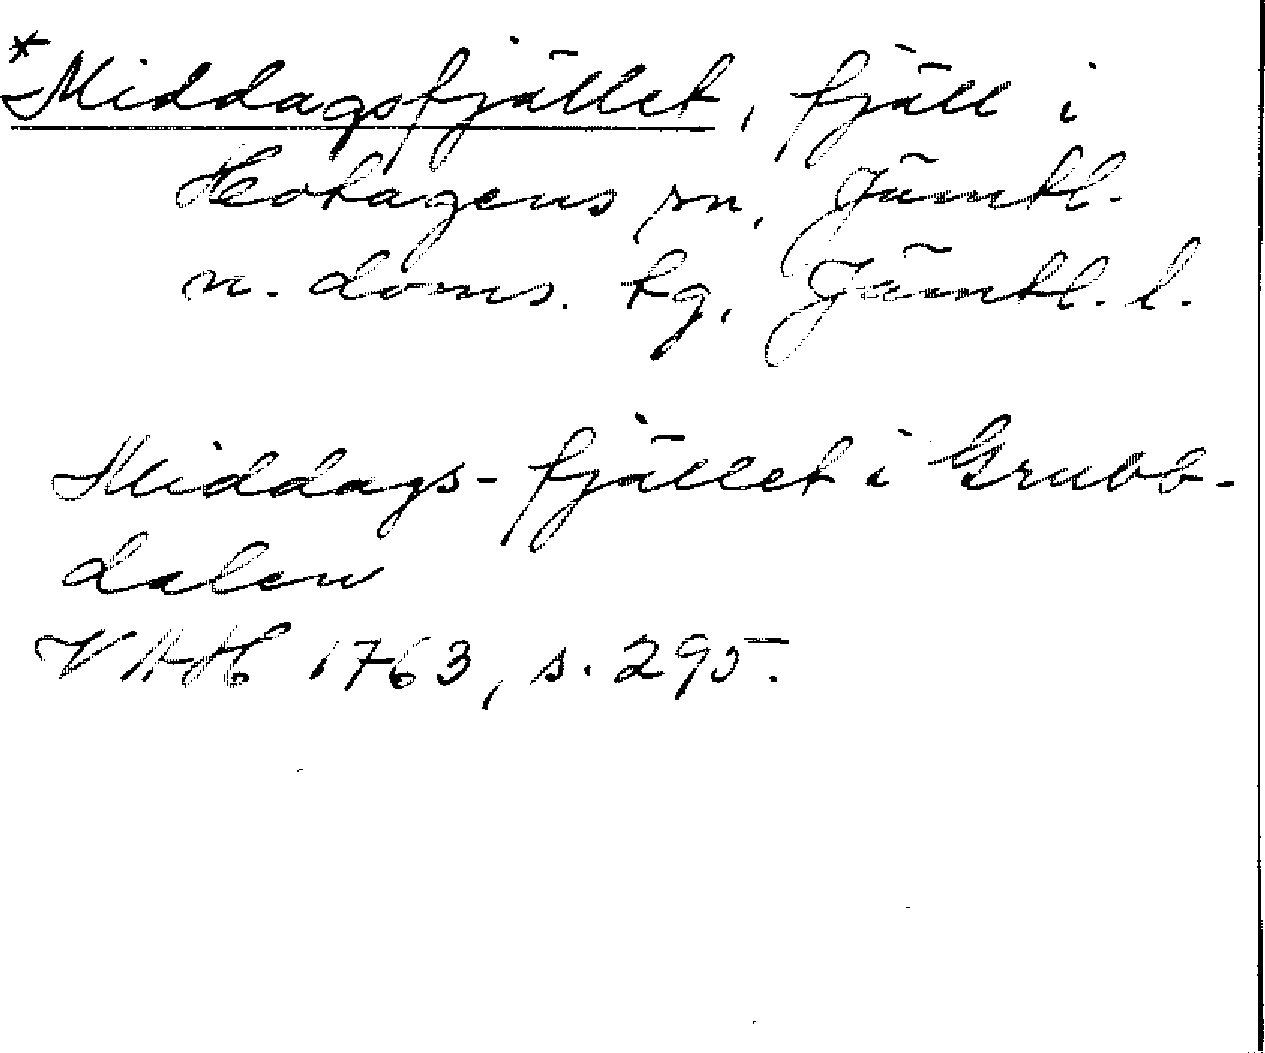 *Middagsfjället, fjäll i
Hotagens sn, Jämtl.
n. doms. tg, Jämtl. l.
Middags-fjället i Grubb-
dalen
VAH 1763, s. 295.